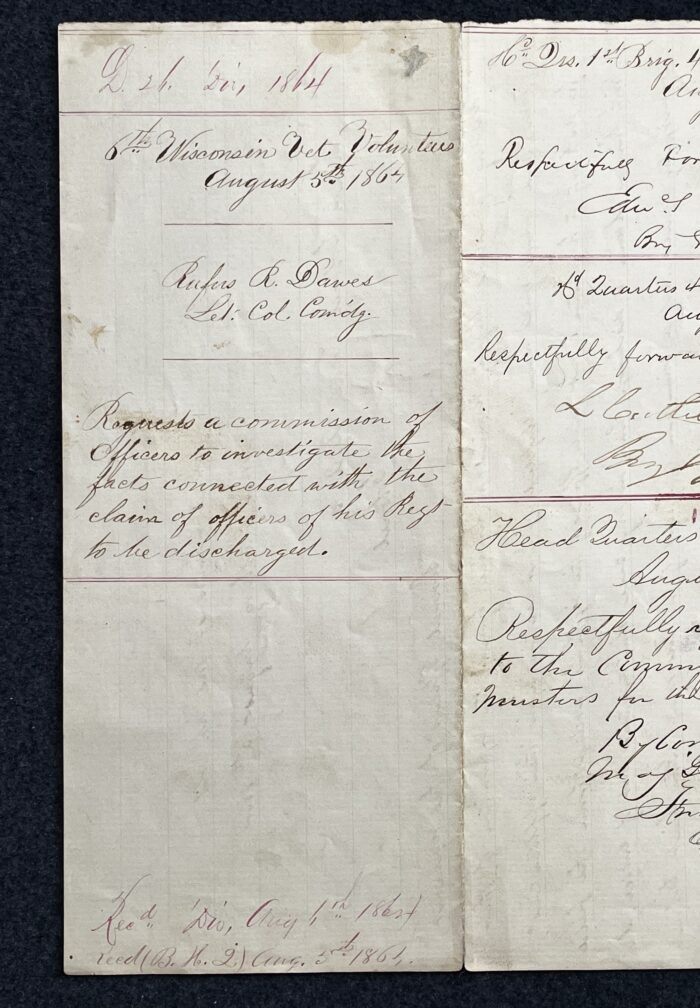 D. 26. Div, 1864
6th Wisconsin Vet Volunteers
August 5th 1864
Rufus R. Dawes
Lt. Col. Comdg.
Requests a commission of
Officers to investigate the
facts connected with the
claim of officers of his Regt
to be discharged.
Rec'd Div, Aug 1864
recd (B. H. Q) Aug. 5th 1864.
Hd Qrs. 1st Brig. 4
Respectfully For
Edw. S
Brig
Hd Quarters 4
Au
Respectfully forwa
Brig
Head Quarters
Augu
Respectfully
to the Comm
musters for the
By Com
Maj